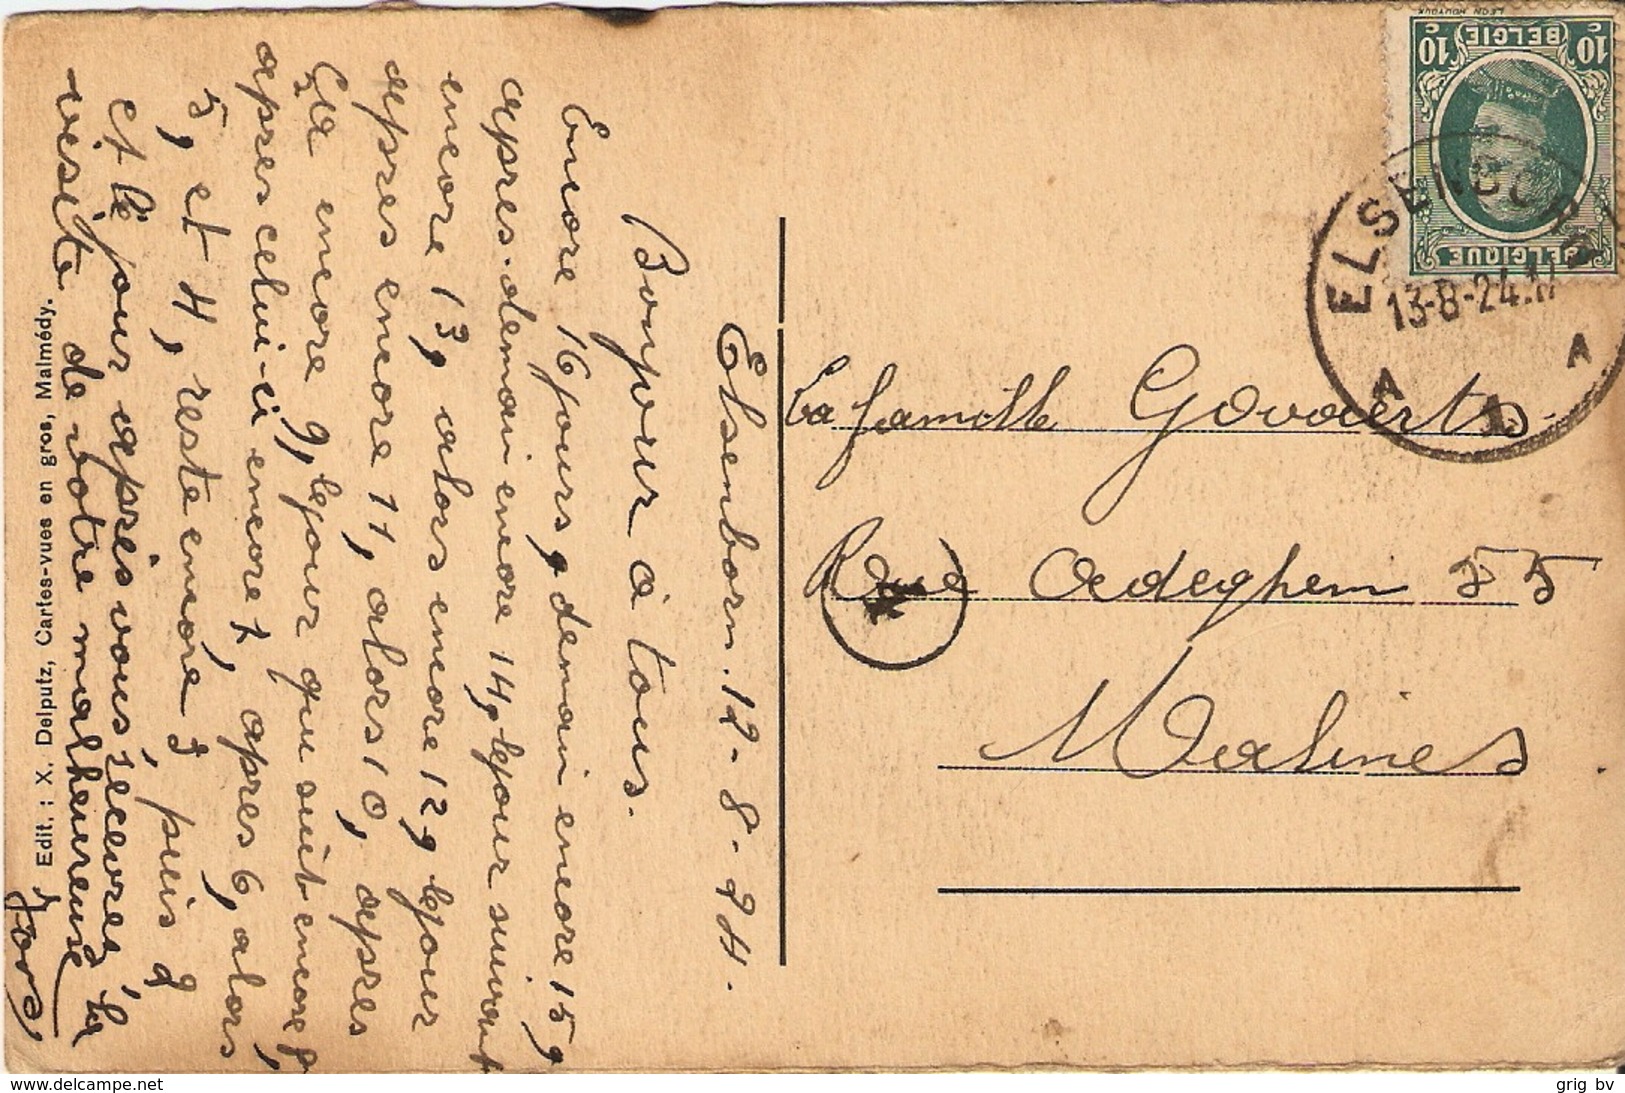 Elsenborn. 12-8-24.
Bonjour à tous.
Encore 16 jours, demain encore 15,
apres-demain encore 14, le jour suivant
encore 13, alors encore 12, le jour
apres encore 11, alors 10, apres
ça encore 9, le jour qui suit encore 8,
apres celui-ci encore 7, apres 6, alors
5, et 4, reste encore 3, puis 2
et le jour après vous recevrez la
visite de votre malheureuse
Jos
Edit. : X. Delputz, Cartes-vues en gros, Malmédy.
BELGIE
10 C
10 C
BELGIQUE
ELSENBORN
13-8-24
A A
La famille Govaerts
Rue Adeghem 55
Malines
delcampe.net
grig bv